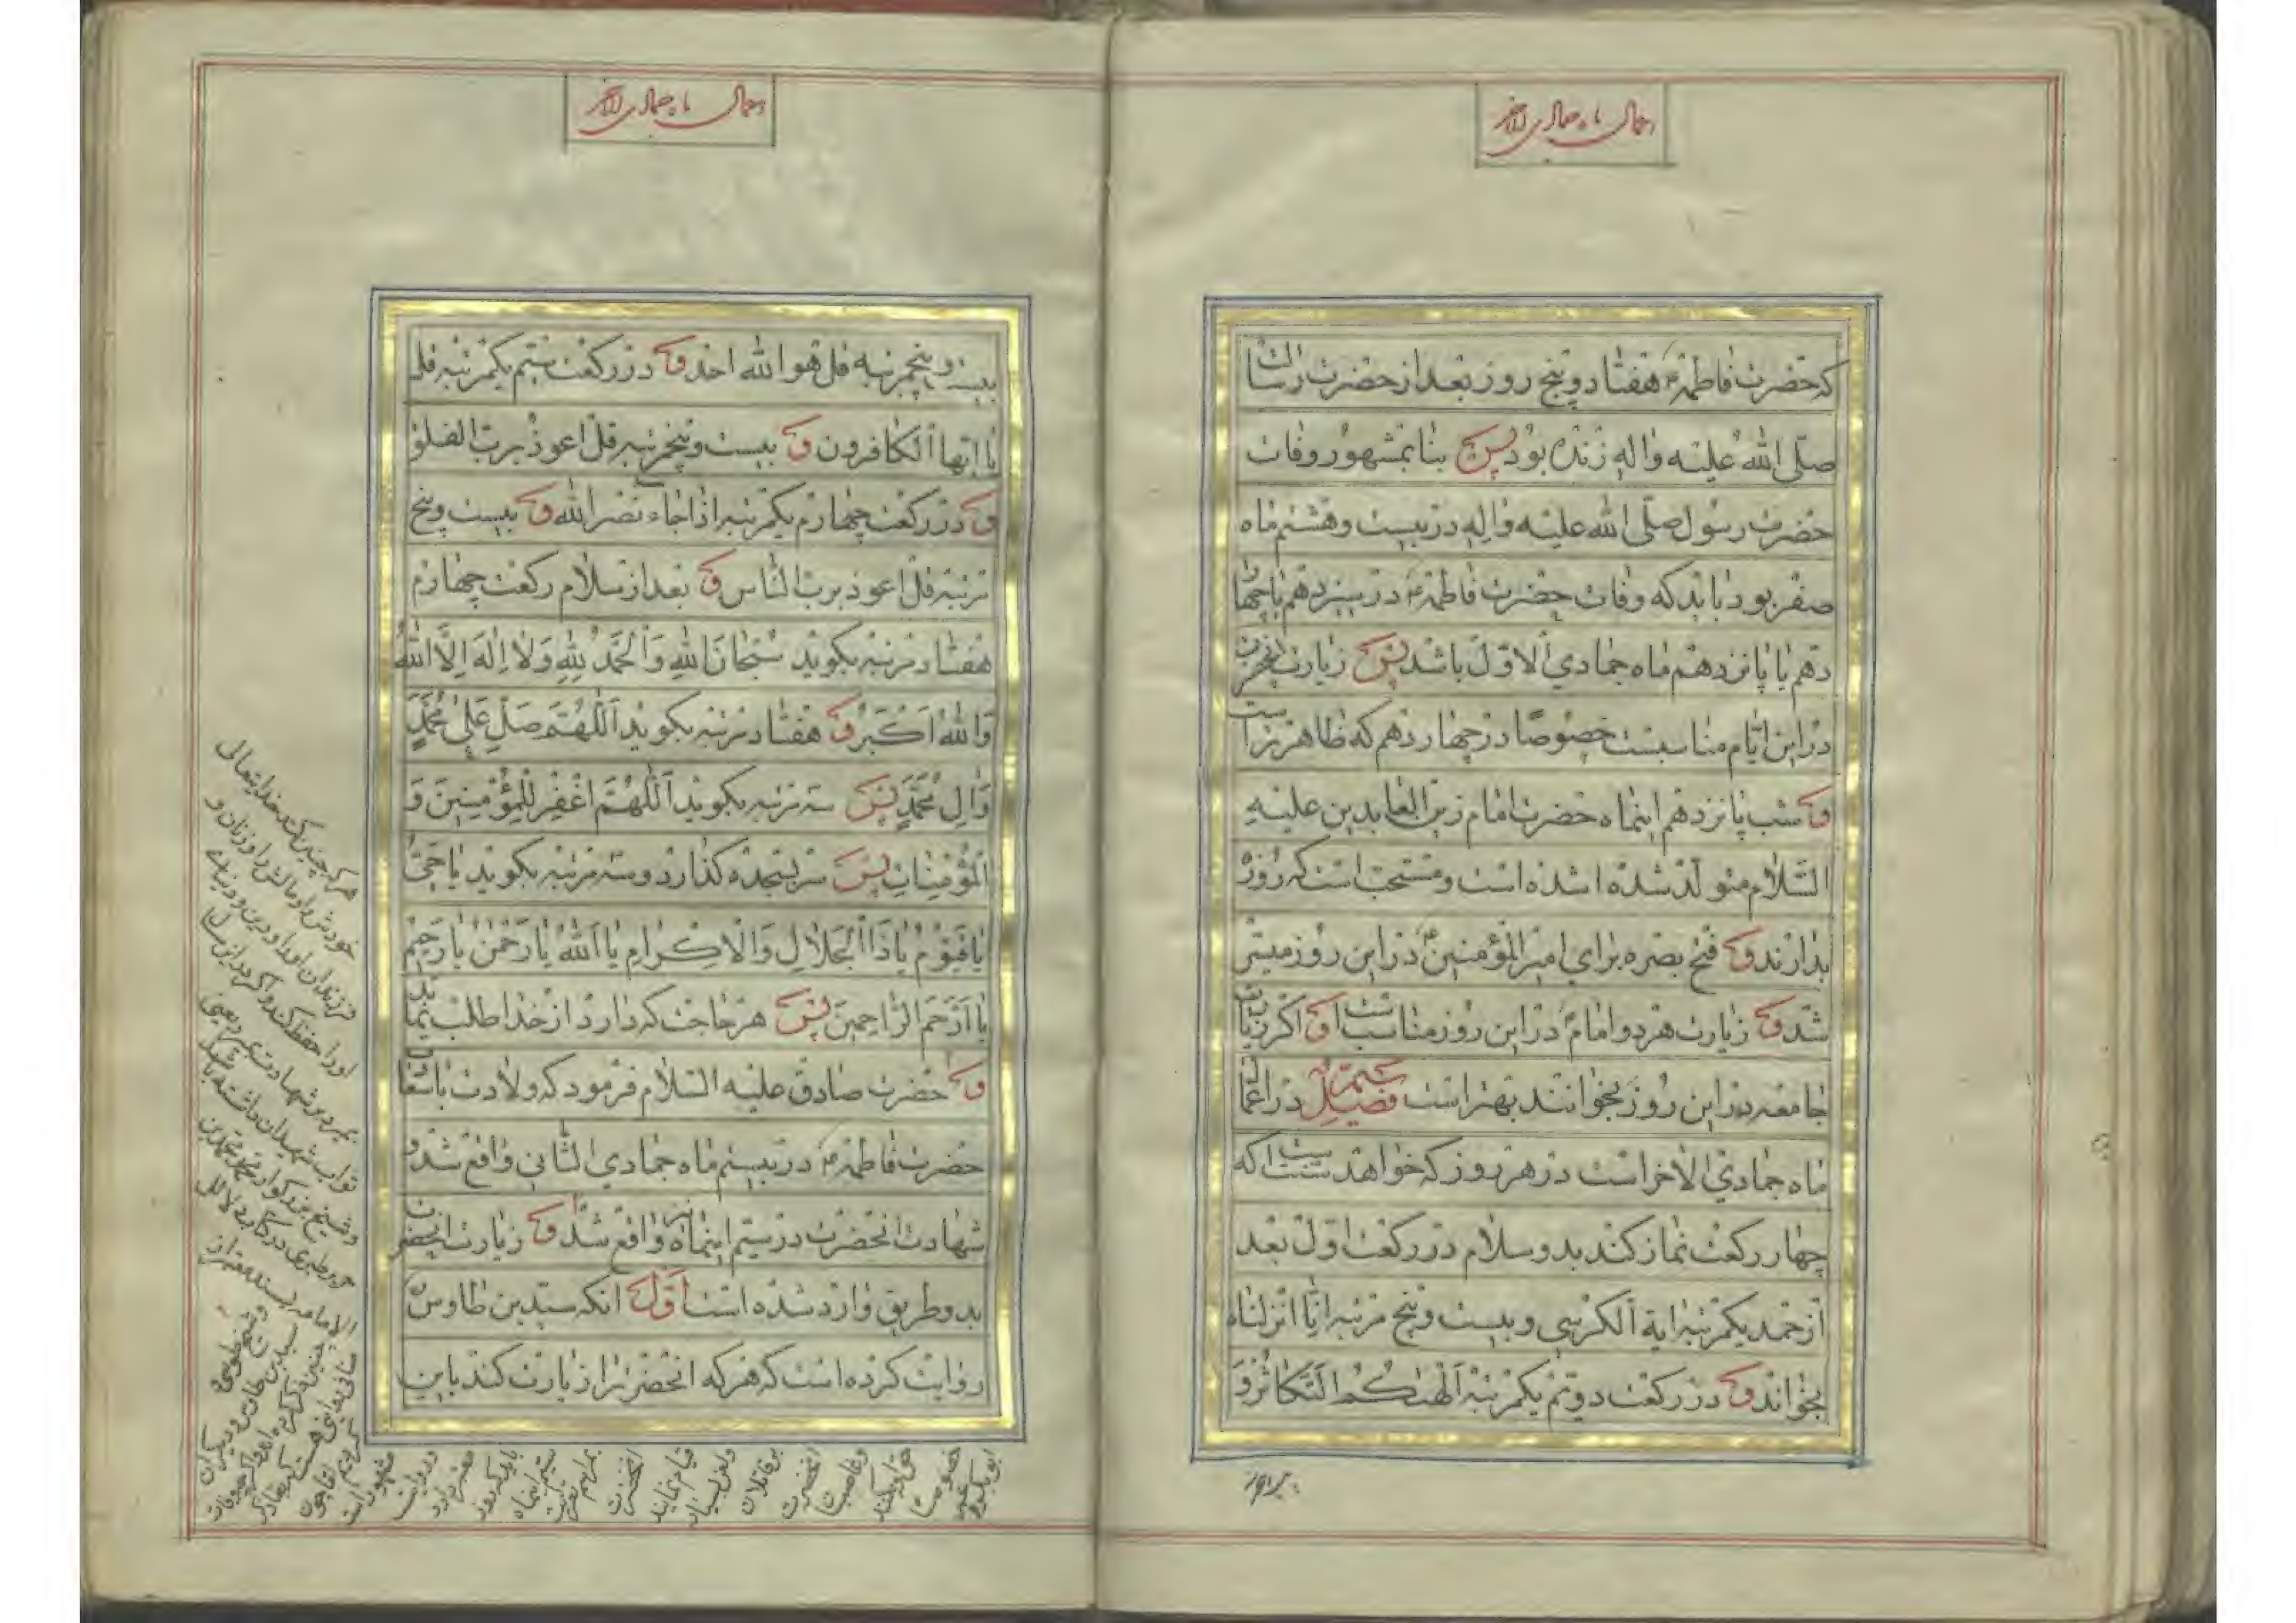 اعمال ماه جمادی الاخر
که حضرت فاطمه ع هفتاد و پنج روز بعد از حضرت رسالت
صلی الله علیه و اله زنده بود پس بنا بمشهور وفات
حضرت رسول صلی الله علیه و اله در بیست و هشتم ماه
صفر بود باید که وفات حضرت فاطمه ع در سیزدهم یا چهار
دهم یا پانزدهم ماه جمادي الاول باشد پس زیارت انحضرت
در این ایام مناسبست خصوصا در چهاردهم که ظاهرتر است
و شب پانزدهم اینماه حضرت امام زین العابدین علیه
السلام متولد شده است و مستحب است که روزه
بدارند و فتح بصره برای امیر المؤمنین ع در این روز میسر
شد و زیارت هر دو امام در این روز مناسب است و اکر زیارت
جامعه در این روز بخوانند بهتر است فصل ششم در اعمال
ماه جمادي الاخر است در هر روز که خواهد سنت است که
چهار رکعت نماز کند بدو سلام در رکعت اول بعد
از حمد یکمرتبه ایة الکرسی و بیست و پنج مرتبه انا انزلناه
بخواند و در رکعت دویم یکمرتبه الهیکم التکاثر و
اعمال ماه جمادی الاخر
بیست و پنجمرتبه قل هو الله احد و در رکعت سیم یکمرتبه قل
یا ایها الکافرون و بیست و پنجمرتبه قل اعوذ برب الفلق
و در رکعت چهارم یکمرتبه اذا جاء نصر الله و بیست و پنج
مرتبه قل اعوذ برب الناس و بعد از سلام رکعت چهارم
هفتاد مرتبه بکوید سُبْحانَ اللهِ وَالْحَمْدُ لِلهِ وَلا اِلهَ اِلَّا اللهُ
وَاللهُ اَکْبَرُ و هفتاد مرتبه بکوید اَللّهُمَّ صَلِّ عَلی مُحَمَّدٍ
وَالِ مُحَمَّدٍ پس سه مرتبه بکوید اَللّهُمَّ اغْفِرْ لِلْمُؤْمِنینَ وَ
الْمُؤْمِناتِ پس سر بسجده کذارد و سه مرتبه بکوید یا حَیُّ
یا قَیُّومُ یا ذَا الْجَلالِ وَالْاِکْرامِ یا اَللهُ یا رَحْمنُ یا رَحیمُ
یا اَرْحَمَ الرّاحِمینَ پس هر حاجت که دارد از خدا طلب نماید
و حضرت صادق علیه السلام فرمود که ولادت باسعادت
حضرت فاطمه ع در بیستم ماه جمادي الثانی واقع شد و
شهادت انحضرت در سیم اینماه نیز واقع شد و زیارت انحضرت
بدو طریق وارد شده است اول انکه سید بن طاوس
روایت کرده است که هر که انحضرت را زیارت کند باین
هر که چنین کند خدایتعالی
خودش را و مالش را و زنان و
فرزندان او را و دین و دنیای
او را حفظ کند و اکر در این سال
بمیرد بر شهادت بمیرد یعنی
ثواب شهیدان داشته باشد
و شیخ بزرکوار محمد بن
جریر طبری در کتاب دلائل
الامامه بسند معتبر از